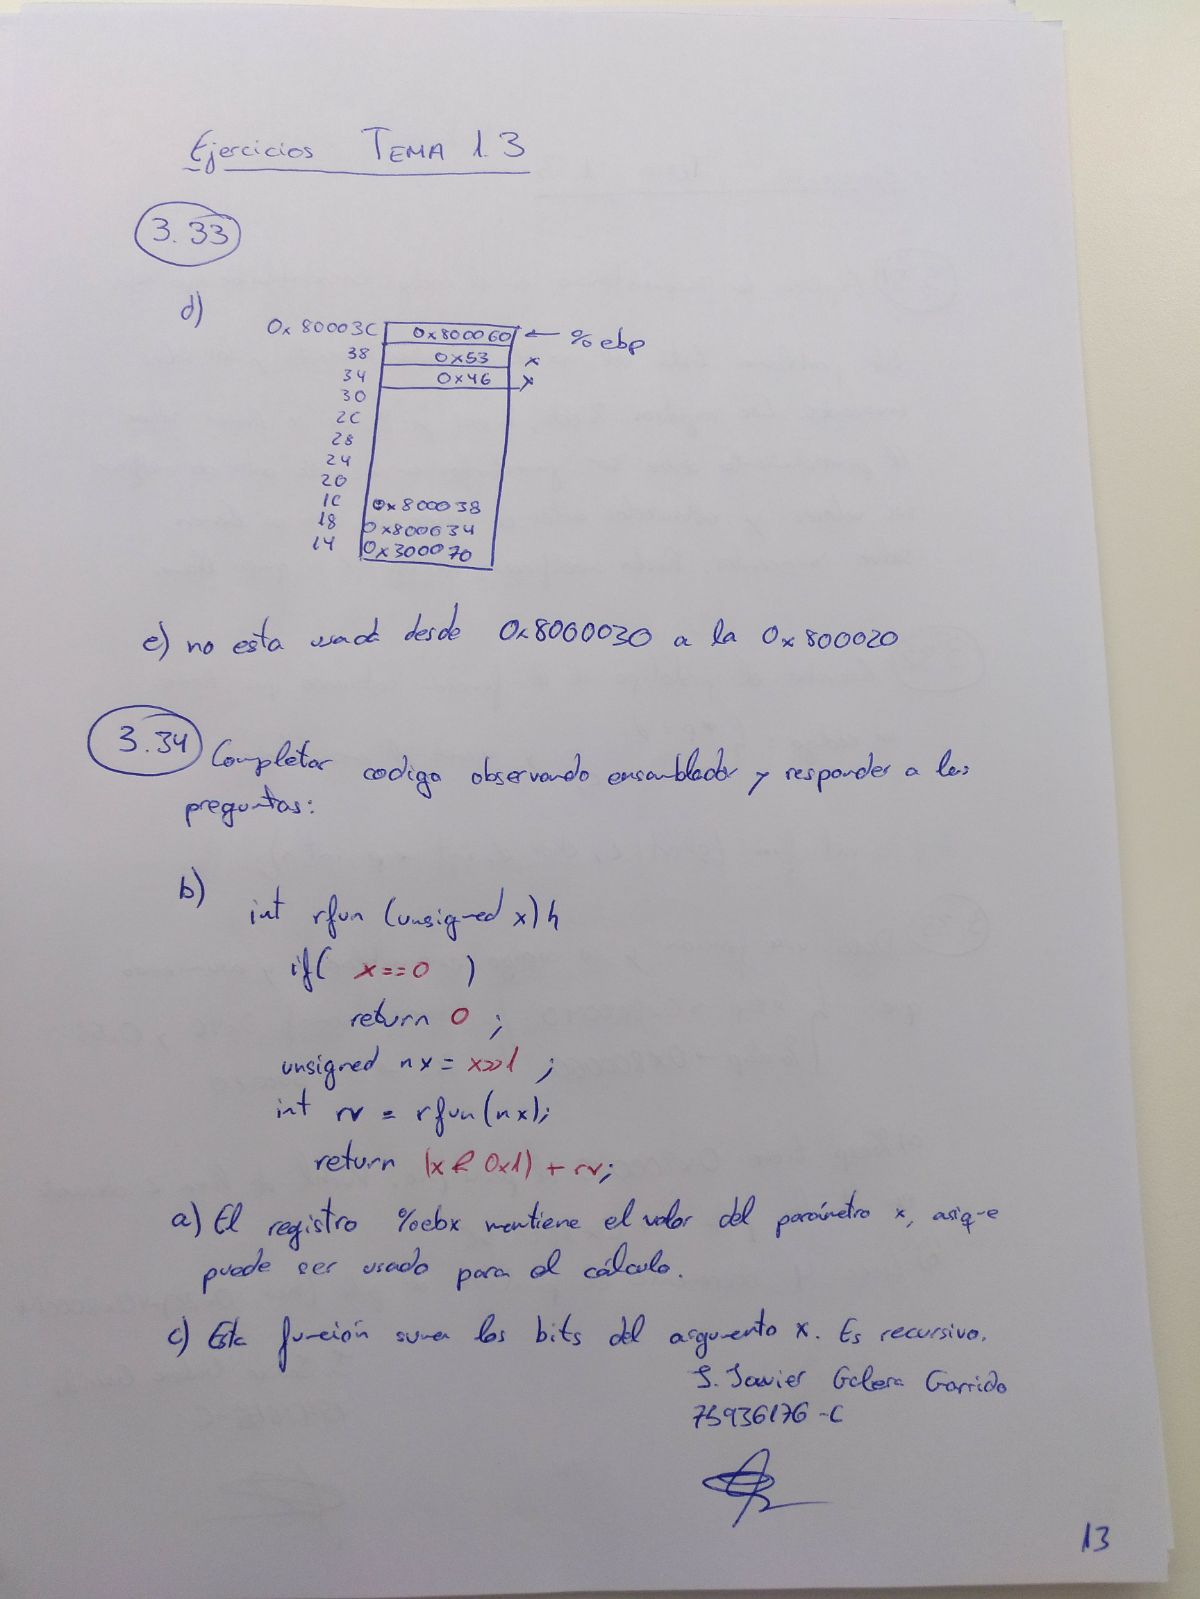 Ejercicios TEMA 1.3
3.33
d)
0x80003C 0x800060 ← %ebp
38 0x53 x
34 0x46 y
30
2C
28
24
20
1C 0x800038
18 0x800034
14 0x300070
e) no esta usada desde 0x8000030 a la 0x800020
3.34 Completar codigo observando ensamblador y responder a las
preguntas:
b)
int rfun (unsigned x){
if( x==0 )
return 0 ;
unsigned nx = x>>1 ;
int rv = rfun(nx);
return (x & 0x1) + rv;
a) El registro %ebx mantiene el valor del parámetro x, asique
puede ser usado para el cálculo.
c) Esta función suma los bits del argumento x. Es recursivo.
J. Javier Galera Garrido
75936176-C
13